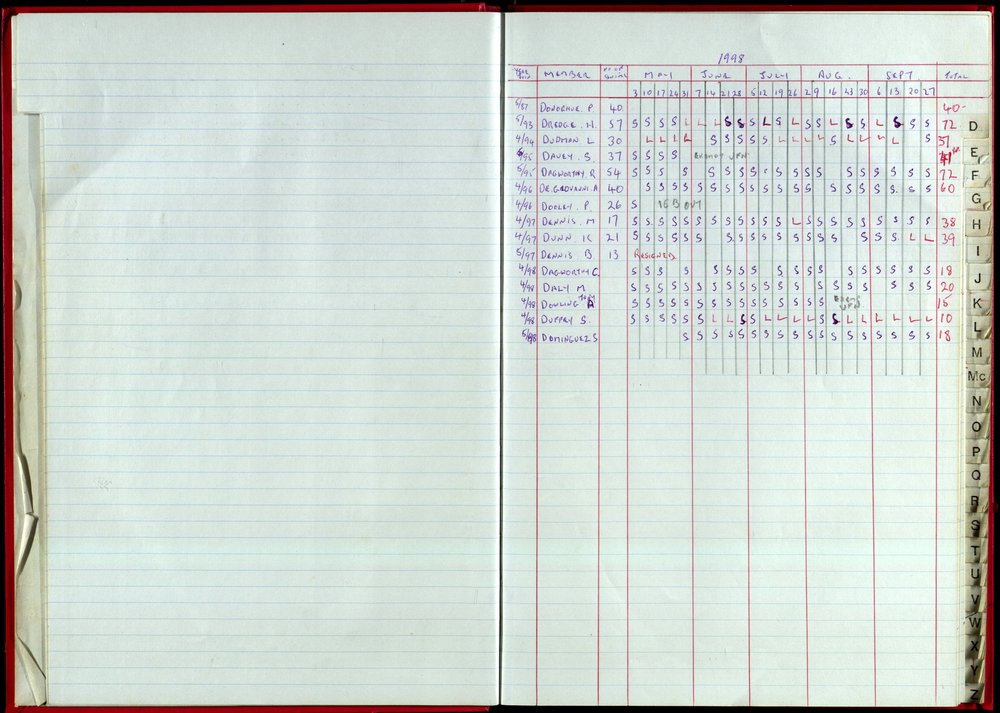 1998
MEMBER MAY JUNE JULY AUG. SEPT TOTAL
3 10 17 24 31 7 14 21 28 5 12 19 26 2 9 16 23 30 6 13 20 27
5/87 DONOGHUE. P. 40 40
5/93 DREDGE. H. 57 S S S S L L L S S S L S L S S L S S L S S S 72
4/94 DUDMAN. L 30 L L L L S S S S S L L L L S L L L L S 37
DAVEY. S. 37 S S S S EXEMPT 41
5/95 DAGWORTHY. R 54 S S S S S S S S S S S S S S S S S S S S 72
4/96 DE. GIOVANNI. A 40 S S S S S S S S S S S S S S S S S S S S 60
4/96 DOOLEY. P. 26 S OUT
4/97 DENNIS. M 17 S S S S S S S S S S S S L S S S S S S S S S 38
4/97 DUNN. K 21 S S S S S S S S S S S S S S S S S S L L 39
5/97 DENNIS B 13 RESIGNED
4/98 DAGWORTHY C. S S S S S S S S S S S S S S S S S S 18
4/98 DALY M S S S S S S S S S S S S S S S S S S S S S 20
4/98 DOWLING A S S S S S S S S S S S S S S S 15
4/98 DUFFRY S. S S S S S S L L S S L L L L S S L L L L L L 10
5/98 DOMINGUEZ S S S S S S S S S S S S S S S S S S S 18
D
E
F
G
H
I
J
K
L
M
Mc
N
O
P
Q
R
S
T
U
V
W
X
Y
Z